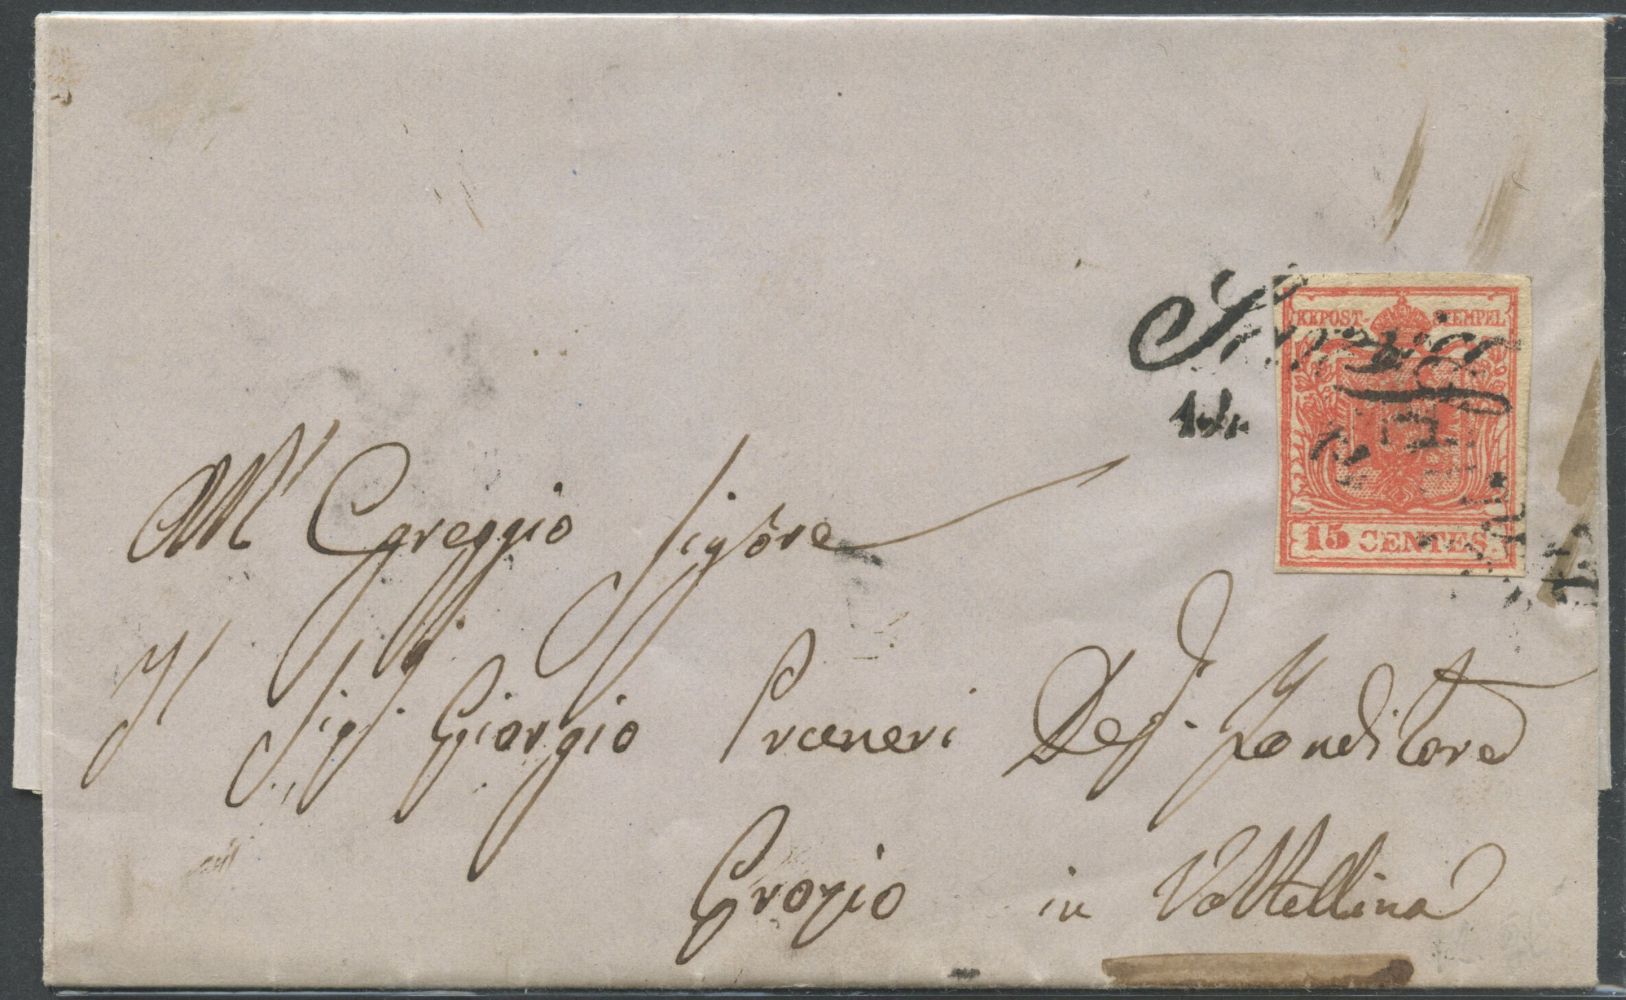 KKPOST-STEMPEL
15 CENTES.
14
All' Egreggio Sig.ore
Il Sig.r Giorgio Praneri Deg.
Grozio in Valtellina